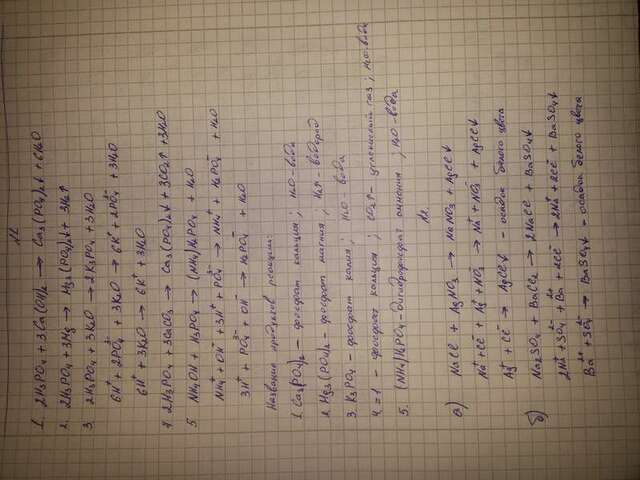 №1.
1. 2H3PO4 + 3Ca(OH)2 → Ca3(PO4)2↓ + 6H2O
2. 2H3PO4 + 3Mg → Mg3(PO4)2↓ + 3H2↑
3. 2H3PO4 + 3K2O → 2K3PO4 + 3H2O
6H⁺ + 2PO4³⁻ + 3K2O → 6K⁺ + 2PO4³⁻ + 3H2O
6H⁺ + 3K2O → 6K⁺ + 3H2O
4. 2H3PO4 + 3CaCO3 → Ca3(PO4)2↓ + 3CO2↑ + 3H2O
5 NH4OH + H3PO4 → (NH4)H2PO4 + H2O
NH4⁺ + OH⁻ + 3H⁺ + PO4³⁻ → NH4⁺ + H2PO4⁻ + H2O
3H⁺ + PO4³⁻ + OH⁻ → H2PO4⁻ + H2O
Название продуктов реакции:
1. Ca3(PO4)2 – фосфат кальция ; H2O – вода
2. Mg3(PO4)2 – фосфат магния ; H2↑ – водород
3. K3PO4 – фосфат калия ; H2O – вода
4. =1 – фосфат кальция ; CO2↑ – углекислый газ ; H2O – вода
5. (NH4)H2PO4 – дигидрофосфат аммония ; H2O – вода
№2.
а) NaCl + AgNO3 → NaNO3 + AgCl↓
Na⁺ + Cl⁻ + Ag⁺ + NO3⁻ → Na⁺ + NO3⁻ + AgCl↓
Ag⁺ + Cl⁻ → AgCl↓ – осадок белого цвета
б) Na2SO4 + BaCl2 → 2NaCl + BaSO4↓
2Na⁺ + SO4²⁻ + Ba²⁺ + 2Cl⁻ → 2Na⁺ + 2Cl⁻ + BaSO4↓
Ba²⁺ + SO4²⁻ → BaSO4↓ – осадок белого цвета